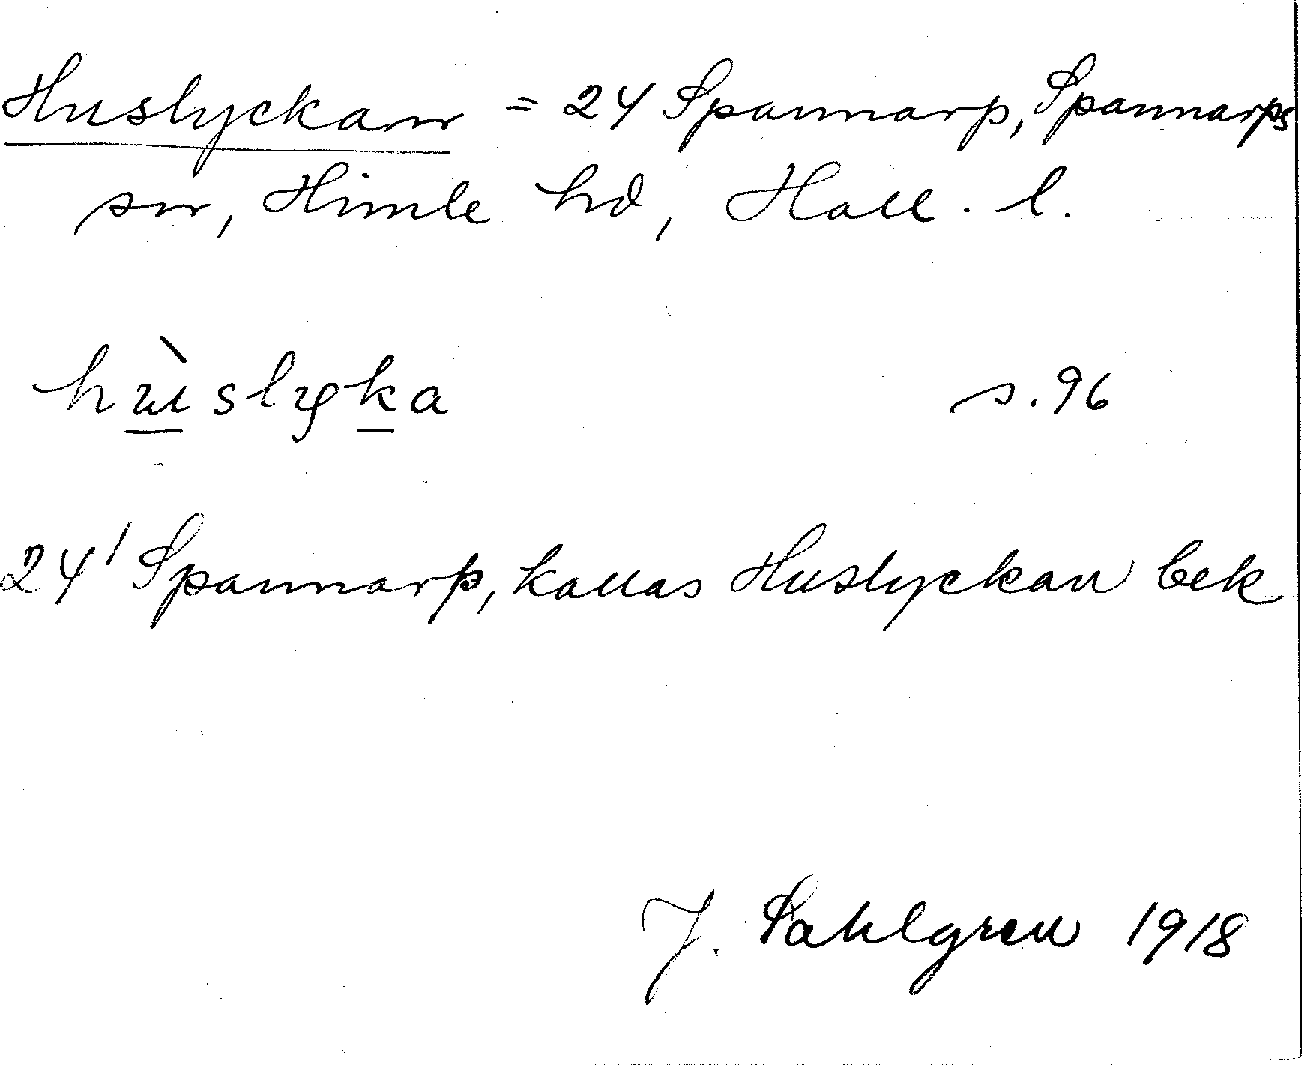 Huslyckan = 24 Spannarp, Spannarps
sn, Himle hd, Hall. l.
hùslyka s. 96
24¹ Spannarp, kallas Huslyckan bek
J. Sahlgren 1918